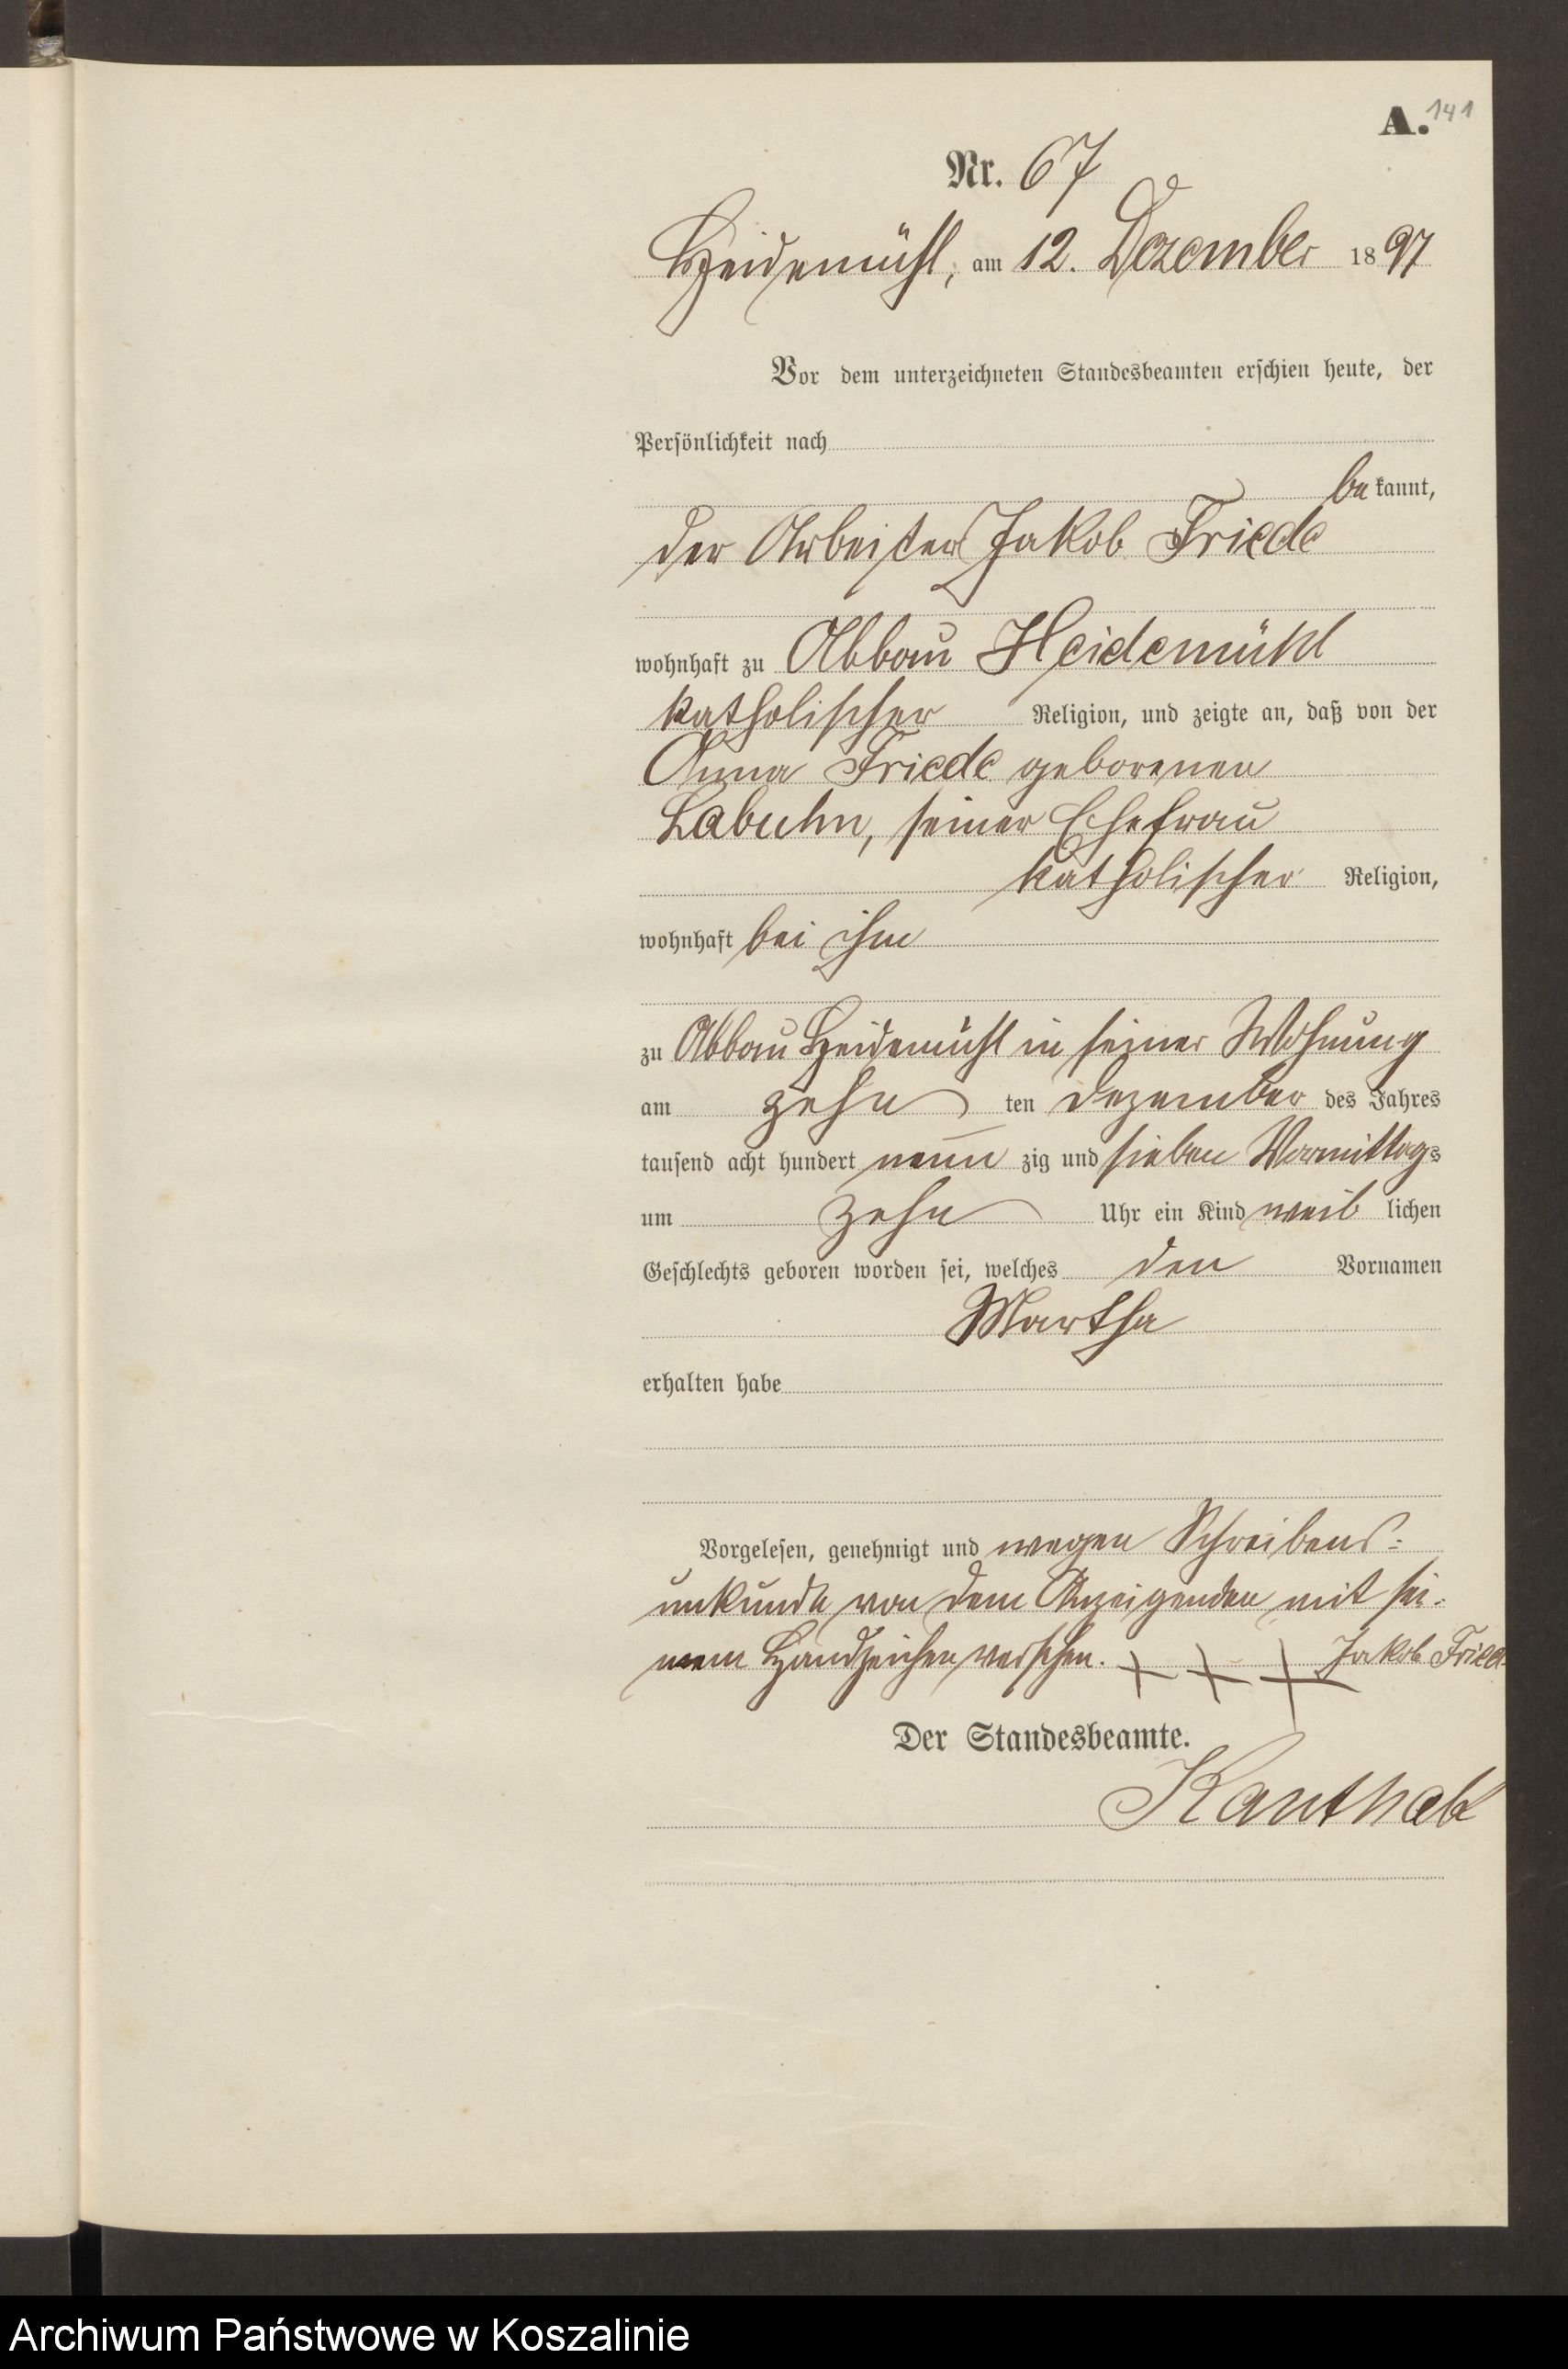 A. 141
Nr. 67
Heidemühl, am 12. Dezember 1897
Vor dem unterzeichneten Standesbeamten erschien heute, der
Persönlichkeit nach
bekannt,
der Arbeiter Jakob Friede
wohnhaft zu Abbau Heidemühl
katholischer Religion, und zeigte an, daß von der
Anna Friede geborenen
Labuhn, seiner Ehefrau
katholischer Religion,
wohnhaft bei ihm
zu Abbau Heidemühl in seiner Wohnung
am zehn ten Dezember des Jahres
tausend acht hundert neun zig und sieben Vormittags
um zehn Uhr ein Kind weiblichen
Geschlechts geboren worden sei, welches den Vornamen
Martha
erhalten habe
Vorgelesen, genehmigt und wegen Schreibens-
unkunde von dem Anzeigenden mit sei-
nem Handzeichen versehen. + + + Jakob Friede
Der Standesbeamte.
Kanthak
Archiwum Państwowe w Koszalinie